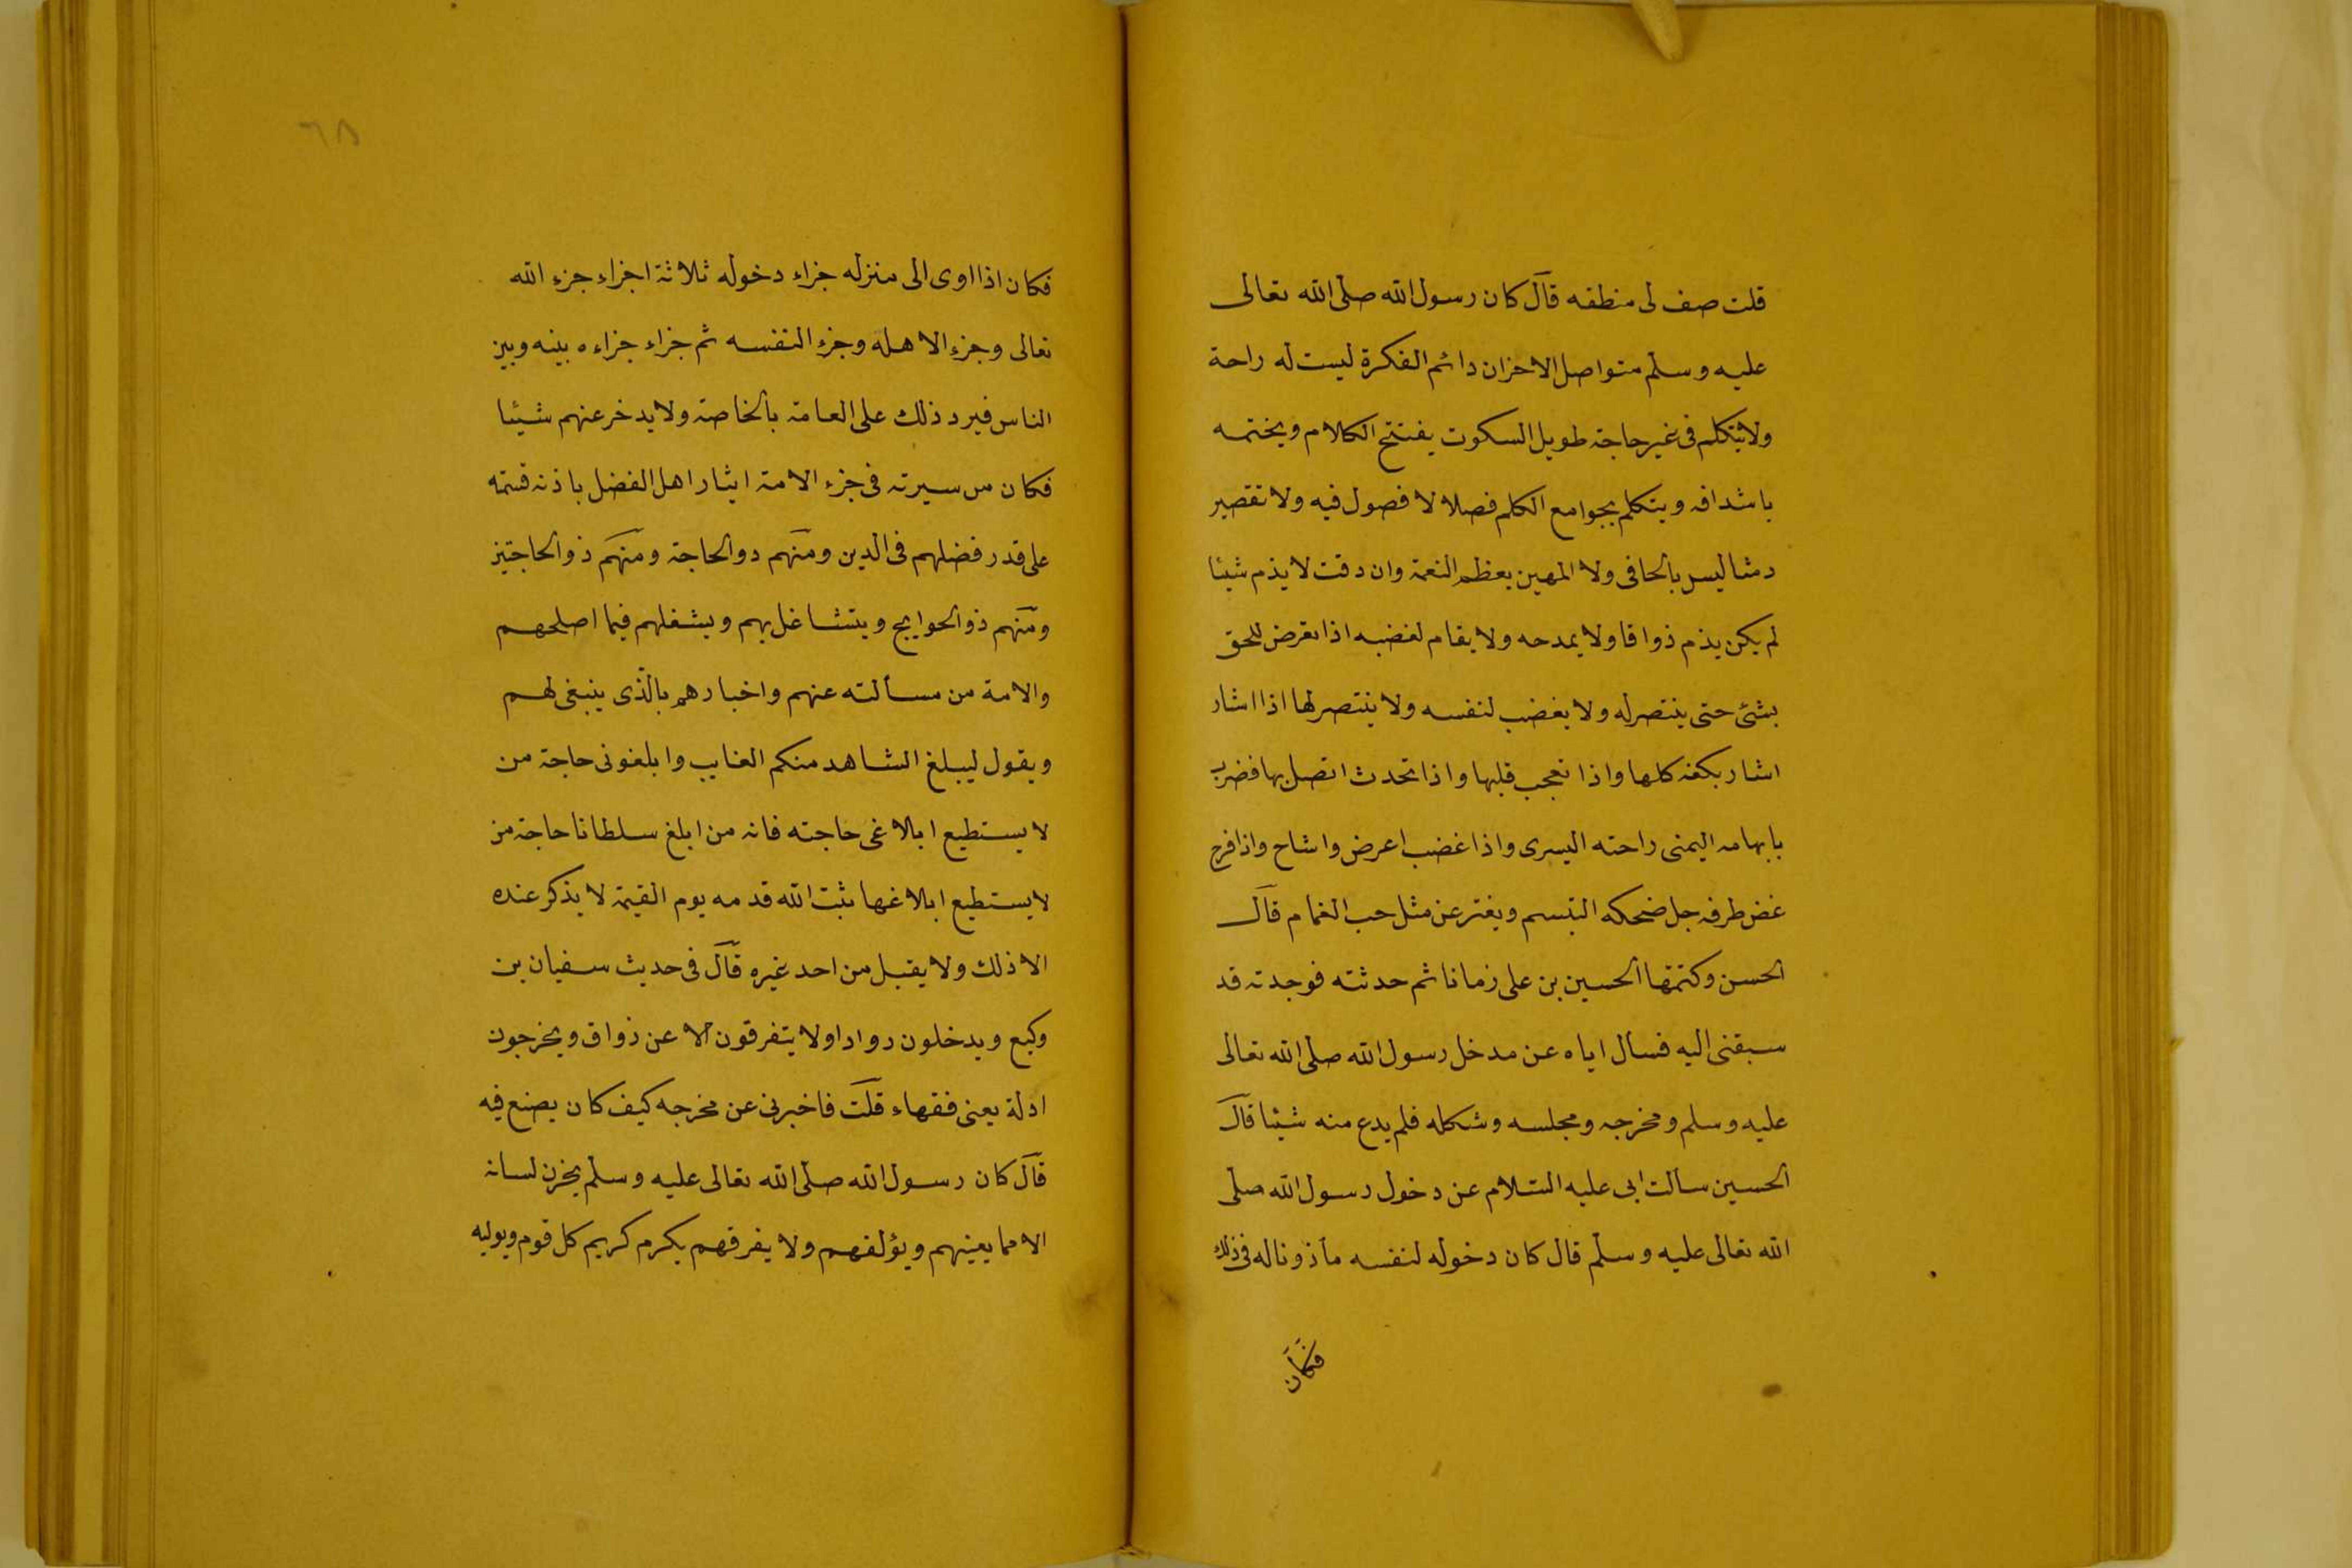 قلت صف لى منطقه قال كان رسول الله صلى الله تعالى
عليه وسلم متواصل الاحزان دائم الفكرة ليست له راحة
ولا يتكلم فى غير حاجة طويل السكوت يفتتح الكلام ويختمه
باشداقه ويتكلم بجوامع الكلم فصلا لا فصول فيه ولا تقصير
دمثا ليس بالحافى ولا المهين يعظم النعمة وان دقت لا يذم شيئا
لم يكن يذم ذواقا ولا يمدحه ولا يقام لغضبه اذا تعرض للحق
بشئ حتى ينتصر له ولا يغضب لنفسه ولا ينتصر لها اذا اشار
اشار بكفه كلها واذا تعجب قلبها واذا تحدث اتصل بها فضرب
بابهامه اليمنى راحته اليسرى واذا غضب اعرض واشاح واذا فرح
غض طرفه جل ضحكه التبسم ويفتر عن مثل حب الغمام قال
الحسن وكتمتها الحسين بن على زمانا ثم حدثته فوجدته قد
سبقنى اليه فسأل اباه عن مدخل رسول الله صلى الله تعالى
عليه وسلم ومخرجه ومجلسه وشكله فلم يدع منه شيئا قال
الحسين سالت ابى عليه السلام عن دخول رسول الله صلى
الله تعالى عليه وسلم قال كان دخوله لنفسه مأذونا له فى ذلك
فكان
٦٨
فكان اذا اوى الى منزله جزاء دخوله ثلاثة اجزاء جزء الله
تعالى وجزء الاهله وجزء النفسه ثم جزاء جزاءه بينه وبين
الناس فيرد ذلك على العامة بالخاصة ولا يدخر عنهم شيئا
فكان من سيرته فى جزء الامة ايثار اهل الفضل باذنه قسمه
على قدر فضلهم فى الدين ومنهم دوالحاجة ومنهم ذوالحاجتين
ومنهم ذوالحوايج ويتشاغل بهم ويشغلهم فيما اصلحهم
والامة من مسألته عنهم واخبارهم بالذى ينبغى لهم
ويقول ليبلغ الشاهد منكم الغايب وابلغونى حاجة من
لا يستطيع ابلاغى حاجته فانه من ابلغ سلطانا حاجة من
لا يستطيع ابلاغها ثبت الله قدمه يوم القيمة لا يذكر عنده
الا ذلك ولا يقبل من احد غيره قال فى حديث سفيان بن
وكيع ويدخلون روادا ولا يتفرقون الا عن ذواق ويخرجون
ادلة يعنى فقهاء قلت فاخبرنى عن مخرجه كيف كان يصنع فيه
قال كان رسول الله صلى الله تعالى عليه وسلم يخزن لسانه
الا مما يعينهم ويؤلفهم ولا يفرقهم يكرم كريم كل قوم ويوليه